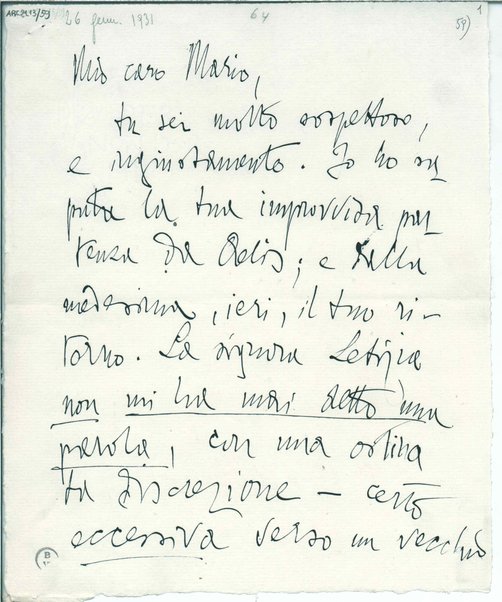 ARC.21.13/59
26 genn. 1931
64
1
59)
Mio caro Mario,
tu sei molto sospettoso,
e ingiustamente. Io ho sa-
puta la tua improvvisa par-
tenza da Aelis; e dalla
medesima, ieri, il tuo ri-
torno. La signora Letizia
non mi ha mai detto una
parola, con una ostina
ta discrezione – certo
eccessiva verso un vecchio
B